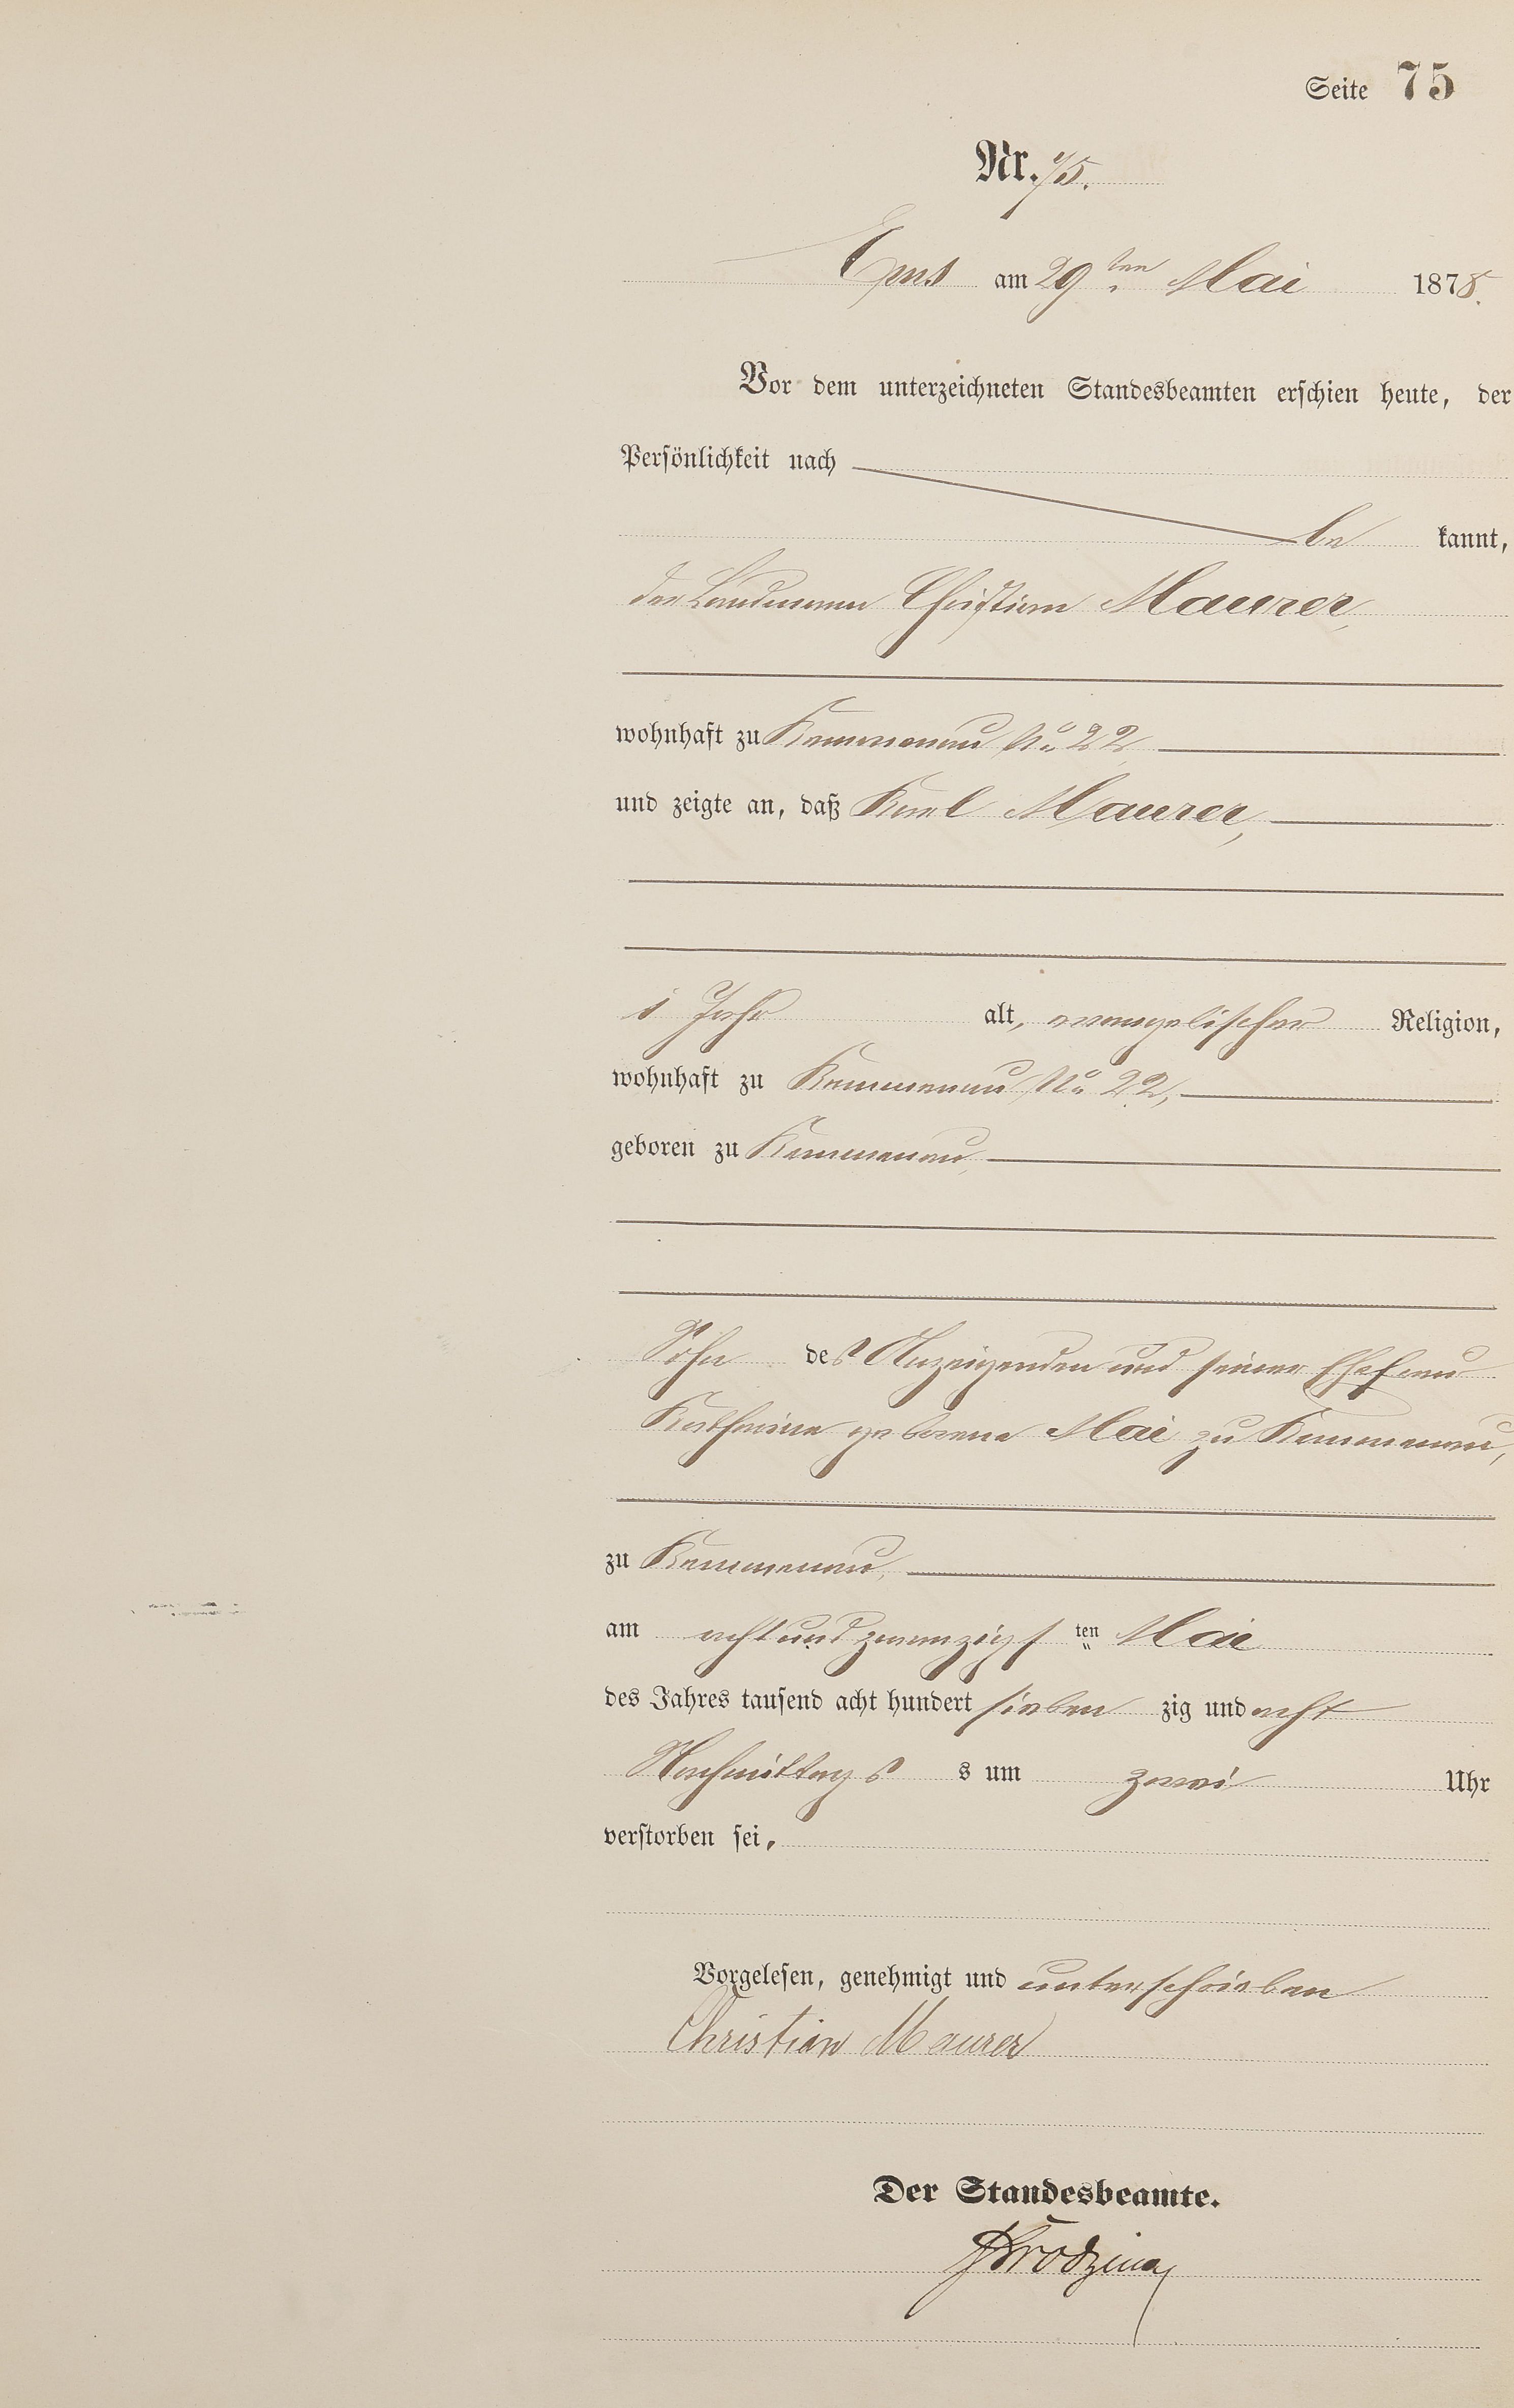 Seite 75
Nr. 75.
Ems am 29ten Mai 1878.
Vor dem unterzeichneten Standesbeamten erschien heute, der
Persönlichkeit nach
be kannt,
der Landmann Christian Maurer,
wohnhaft zu Kemmenau No 22,
und zeigte an, daß Karl Maurer,
1 Jahr alt, evangelischer Religion,
wohnhaft zu Kemmenau No 22,
geboren zu Kemmenau,
Sohn des Anzeigenden und seiner Ehefrau
Katharine geborene Mai zu Kemmenau,
zu Kemmenau,
am achtundzwanzigsten Mai
des Jahres tausend acht hundert sieben zig und acht
Nachmittags s um zwei Uhr
verstorben sei.
Vorgelesen, genehmigt und unterschrieben
Christian Maurer
Der Standesbeamte.